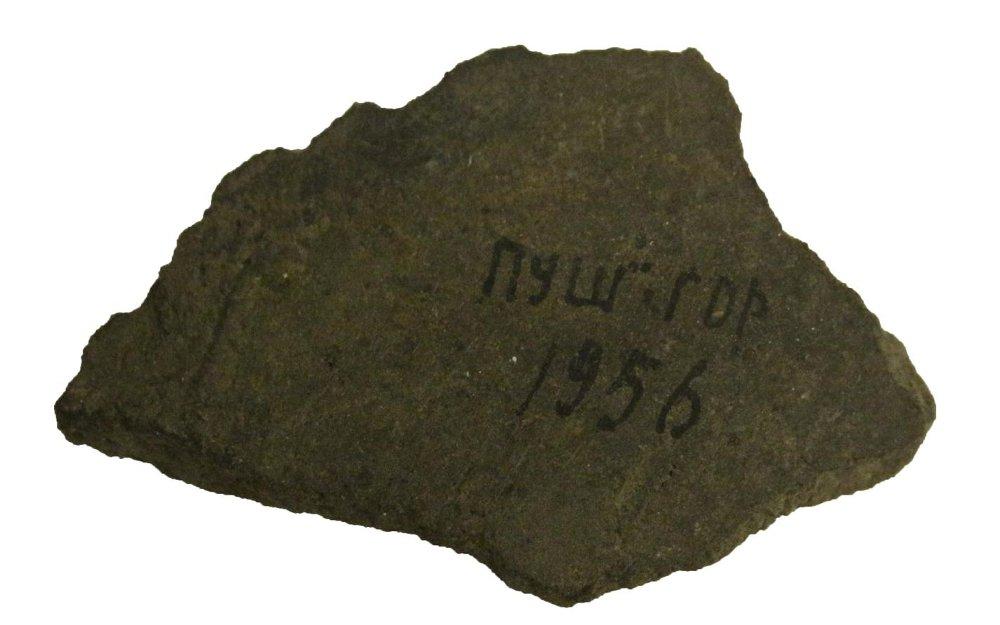 ПУШ. ГОР
1956